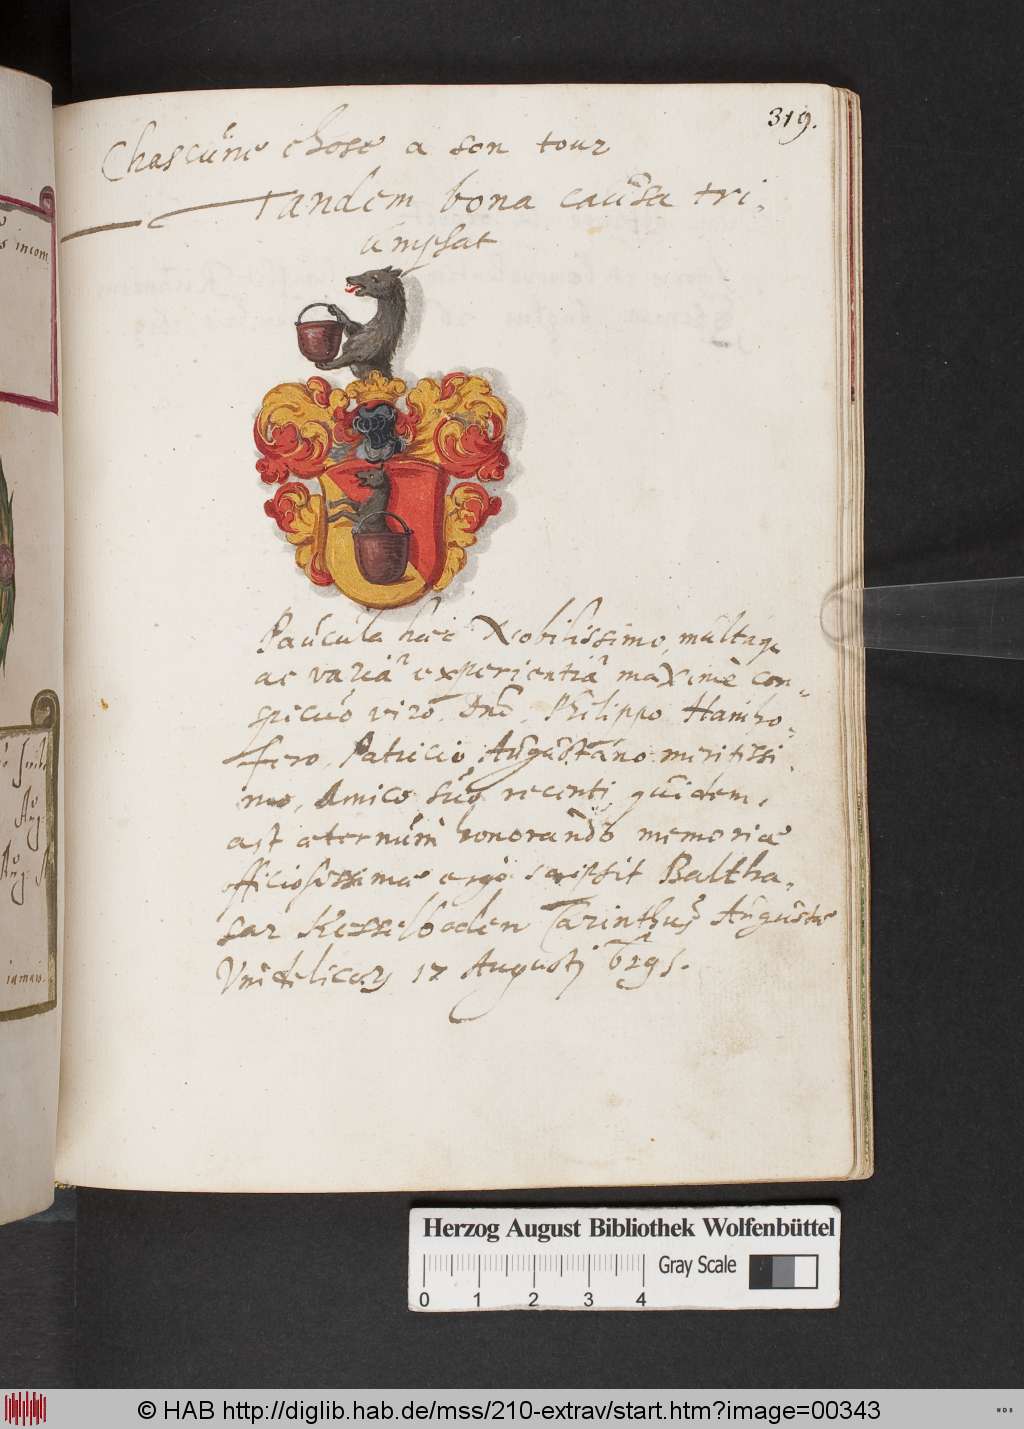 319.
Chascune chose a son tour
Tandem bona causa tri-
umphat
Paucula haec Nobilissimo, multaq
ac varia experientia maximè con-
spicuo viro, Dnō. Philippo Hainho-
fero, Patricio Augustano meritissi-
mo, Amico suo recenti quidem,
ast aeternùm honorando memoriae
officiosissimae ergò scripsit Baltha-
sar Kesselboden Carinthus Augustae
Vindelicor. 17 Augusti
s incom
iamais.
Herzog August Bibliothek Wolfenbüttel
Gray Scale
0 1 2 3 4
© HAB http://diglib.hab.de/mss/210-extrav/start.htm?image=00343
HAB